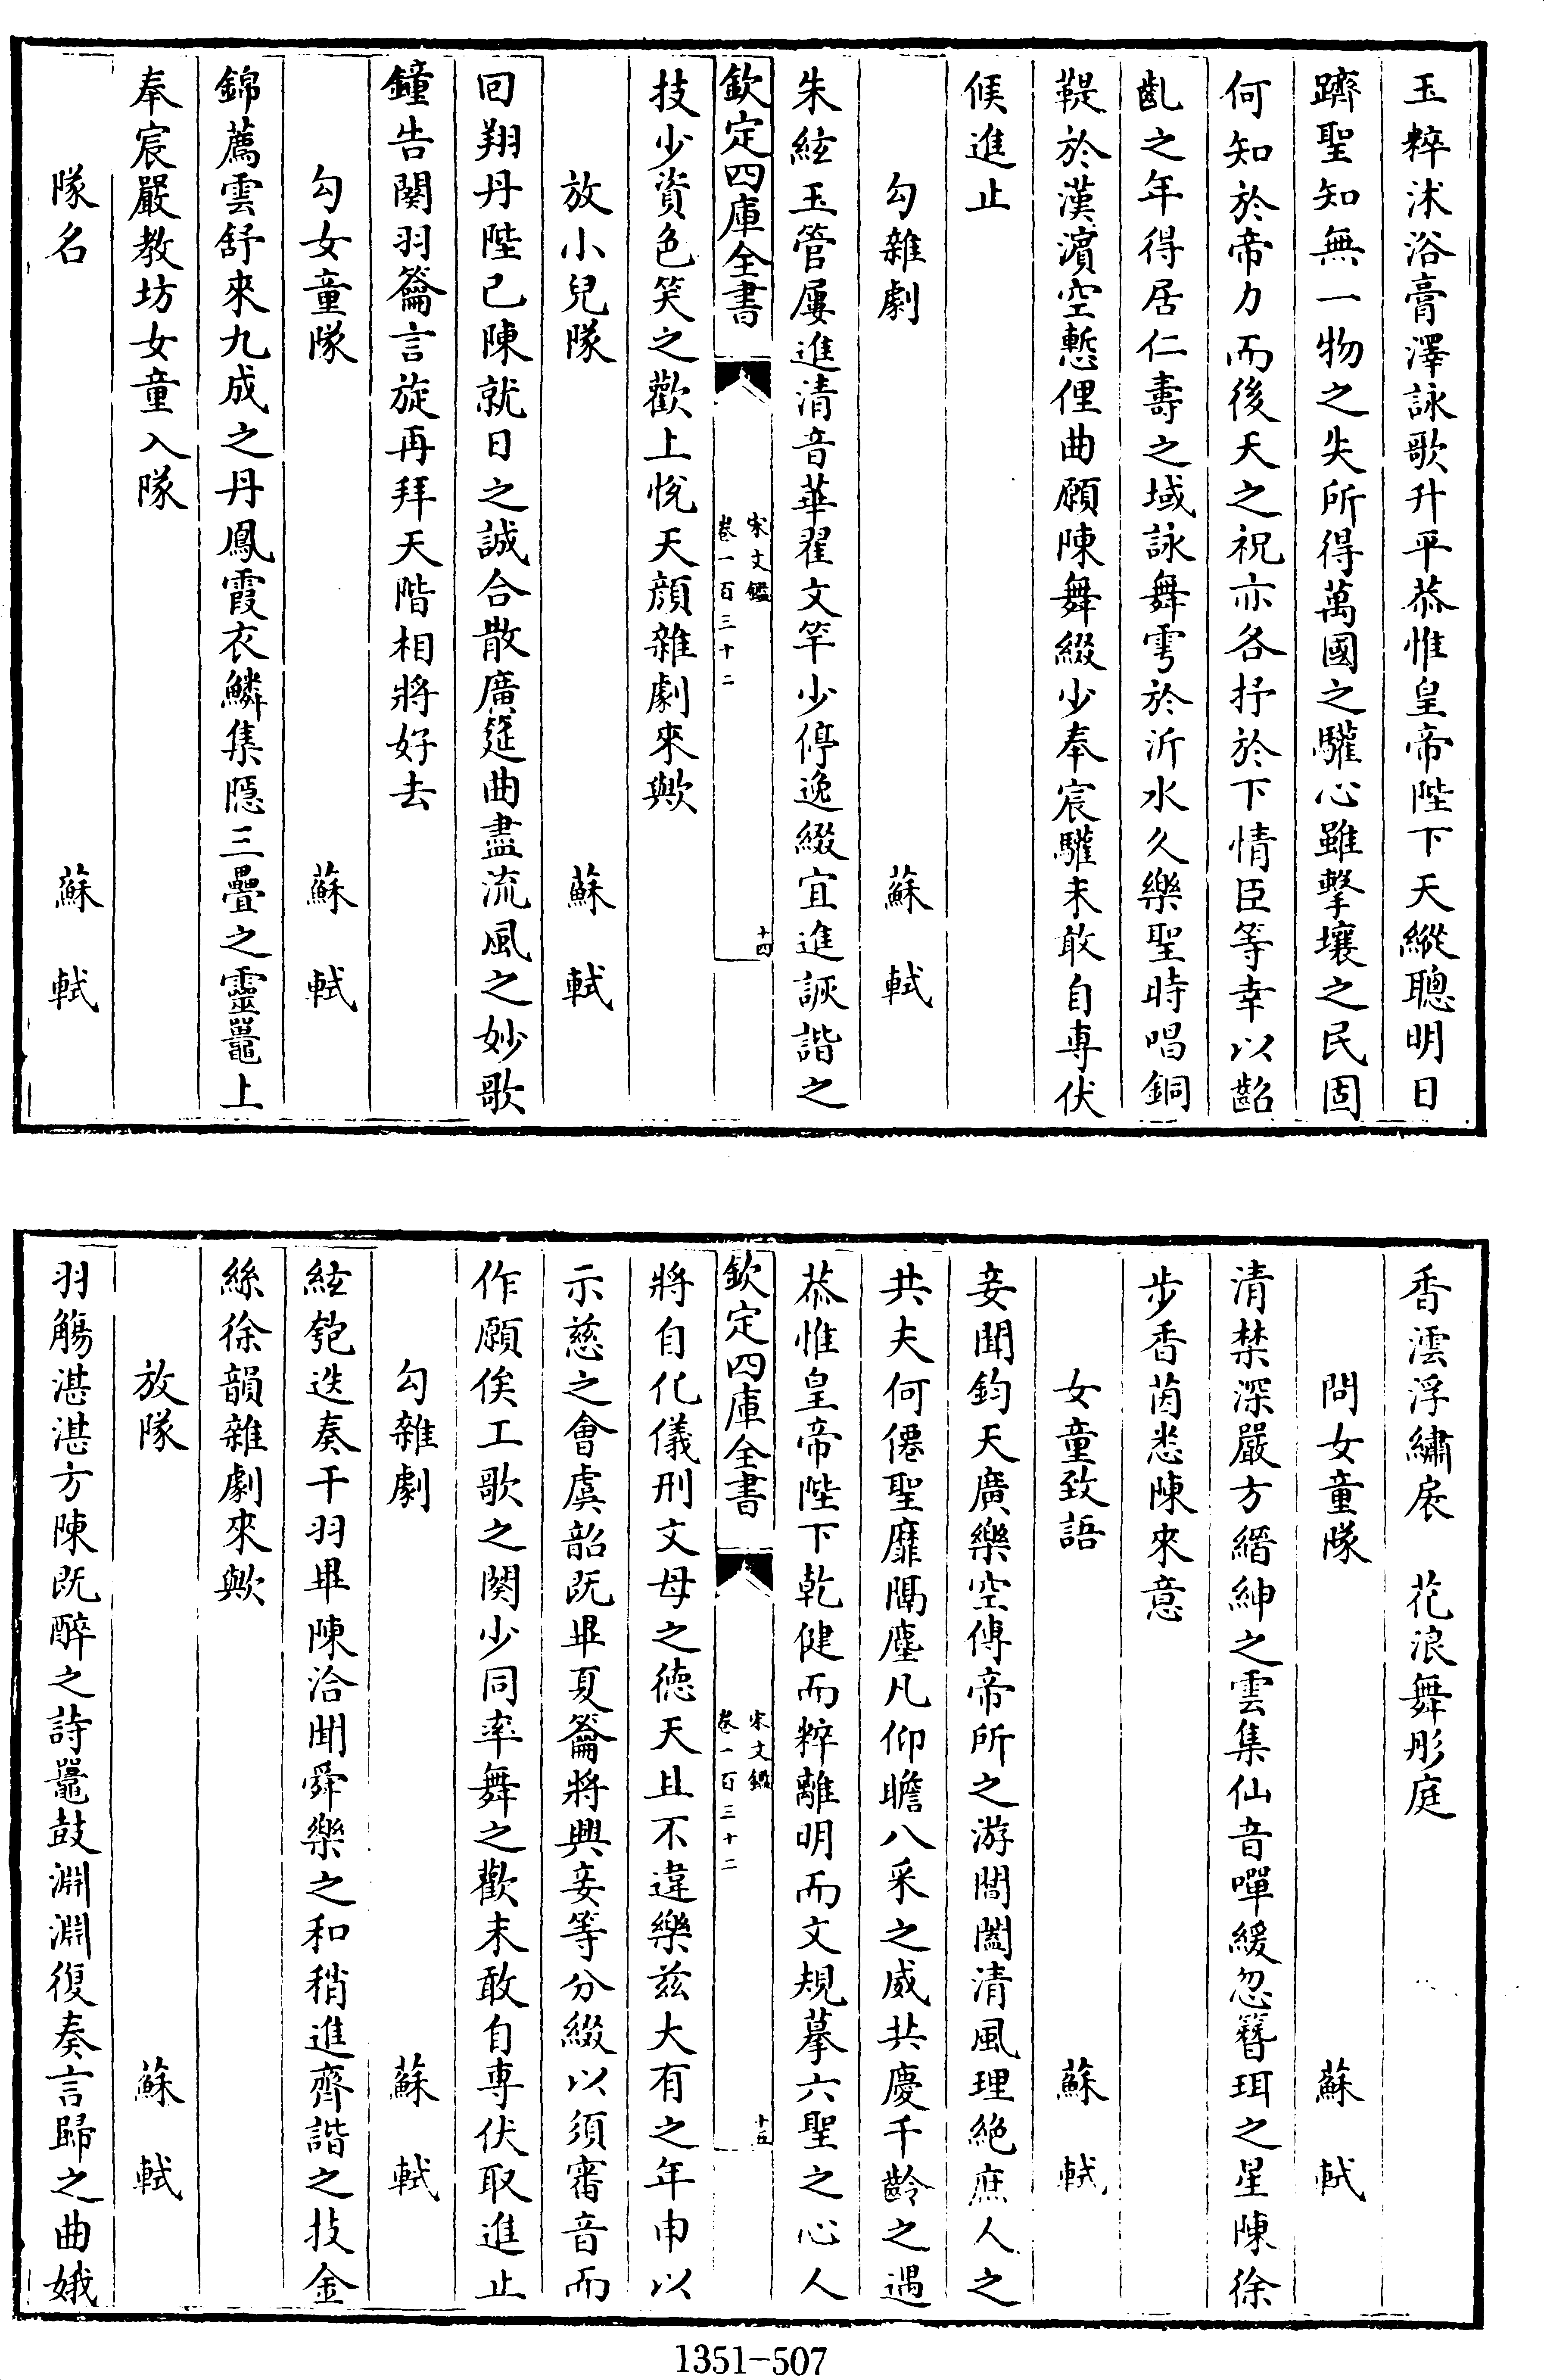 玉粹沐浴膏澤詠歌升平恭惟皇帝陛下天縱聰明日
躋聖知無一物之失所得萬國之驩心雖擊壤之民固
何知於帝力而後天之祝亦各抒於下情臣等幸以齠
齓之年得居仁壽之域詠舞雩於沂水久樂聖時唱銅
鞮於漢濵空慙俚曲願陳舞綴少奉宸驩未敢自專伏
候進止
勾雜劇 蘇軾
朱絃玉管屢進清音華翟文竿少停逸綴宜進詼諧之
欽定四庫全書 宋文鑑 卷一百三十二 十四
技少資色笑之歡上悅天顔雜劇來歟
放小兒隊 蘇軾
回翔丹陛已陳就日之誠合散廣筵曲盡流風之妙歌
鐘告闋羽籥言旋再拜天階相將好去
勾女童隊 蘇軾
錦薦雲舒來九成之丹鳳霞衣鱗集隱三疊之靈鼉上
奉宸嚴教坊女童入隊
隊名 蘇軾
香澐浮繡扆 花浪舞彤庭
問女童隊 蘇軾
清禁深嚴方縉紳之雲集仙音嘽緩忽簪珥之星陳徐
步香茵悉陳來意
女童致語 蘇軾
妾聞鈞天廣樂空傳帝所之游閶闔清風理絶庶人之
共夫何僊聖靡隔塵凡仰瞻八采之威共慶千齡之遇
恭惟皇帝陛下乾健而粹離明而文規摹六聖之心人
欽定四庫全書 宋文鑑 卷一百三十二 十五
將自化儀刑文母之徳天且不違樂兹大有之年申以
示慈之會虞韶既畢夏籥將興妾等分綴以須審音而
作願俟工歌之闋少同率舞之歡未敢自專伏取進止
勾雜劇 蘇軾
絃匏迭奏干羽畢陳洽聞舜樂之和稍進齊諧之技金
絲徐韻雜劇來歟
放隊 蘇軾
羽觴湛湛方陳既醉之詩鼉鼓淵淵復奏言歸之曲娥
1351-507